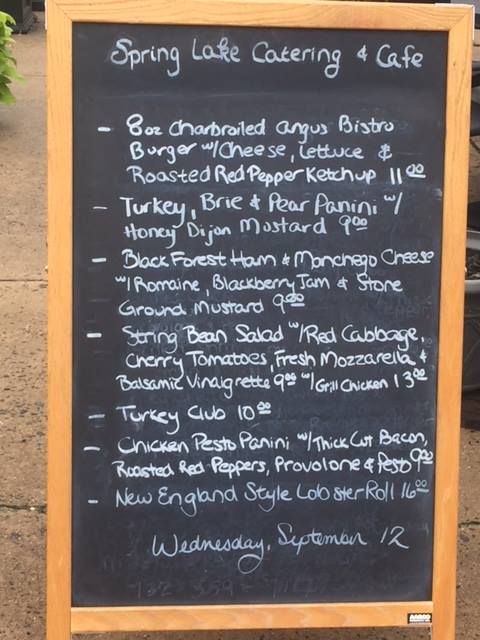 Spring Lake Catering & Cafe
- 8oz Charbroiled angus Bistro
Burger w/Cheese, lettuce &
Roasted Red Pepper Ketchup 11.00
- Turkey, Brie & Pear Panini w/
Honey Dijon Mustard 9.00
- Black Forest Ham & Manchego Cheese
w/Romaine, Blackberry Jam & Stone
Ground Mustard 9.00
- String Bean Salad w/Red Cabbage,
Cherry Tomatoes, Fresh Mozzarella &
Balsamic Vinaigrette 9.00 w/Grill Chicken 13.00
- Turkey Club 10.00
- Chicken Pesto Panini w/Thick Cut Bacon,
Roasted Red Peppers, Provolone & Pesto 9.00
- New England Style Lobster Roll 16.00
Wednesday, September 12